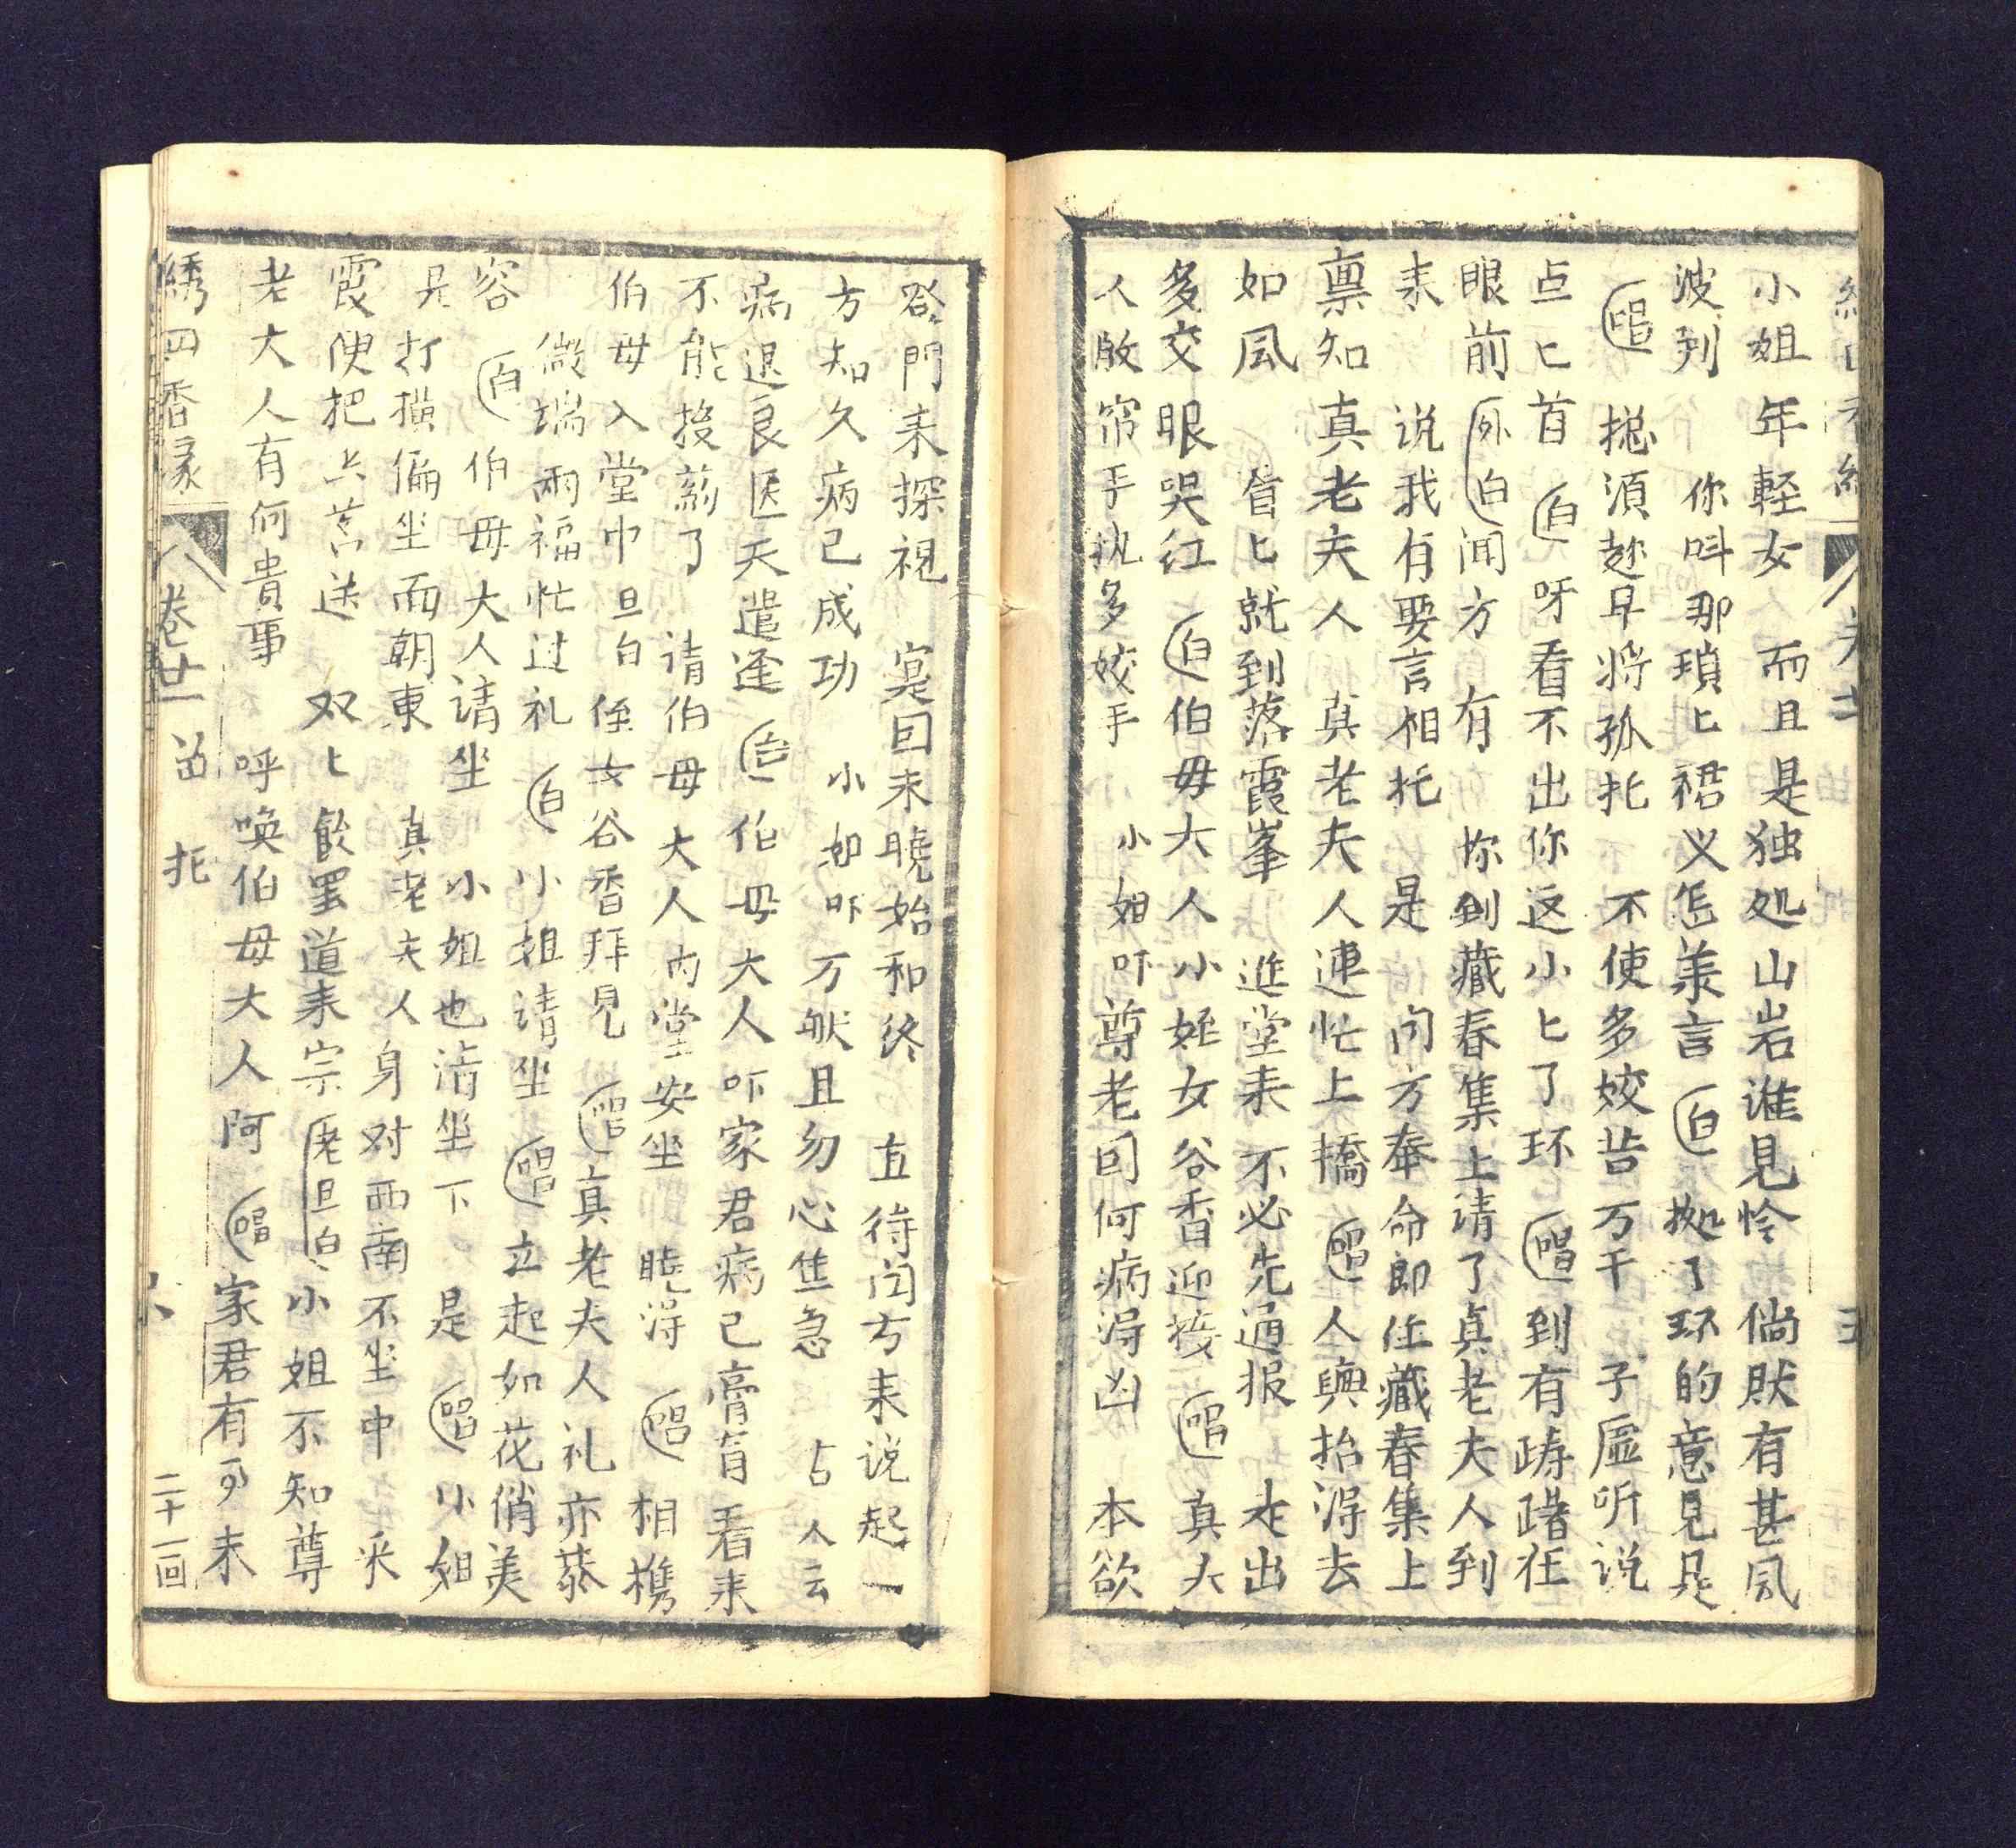 小姐年輕女　而且是独処山岩谁見怜　倘肰有甚風
波到　你呌那瑣匕裙义怎羕言(白)　拠了环的意見是
(唱)　搃須趂早将孤托　不使多姣苦万千　子虛听说
点匕首(白)呀看不出你这小匕了环(唱)到有踌躇在
眼前(外白)闻方　有　你到藏春集上请了真老夫人到
来　说我有要言相托　是　闻方奉命即往藏春集上
禀知真老夫人　真老夫人連忙上橋(唱)人輿抬淂去
如風　眢匕就到落霞峯　進堂来不必先通报　走出
多交眼哭红(白)伯毋大人小姪女谷香迎接(唱)真大
人啟帘手执多姣手　小姐吓尊老囙何病淂凶　本欲
登門来探視　寔囙末曉始和终　直待闻方来说起一
方知久病已成功　小姐吓万肰且勿心焦急　古人云
病退良医天遣逢(白)伯毋大人吓家君病已膏肓看来
不能投葯了　请伯毋大人內堂安坐　曉淂(唱)相携
伯毋入堂中旦白　侄女谷香拜見(唱)真老夫人礼亦恭
微端兩福忙过礼(白)小姐请坐(唱)立起如花俏美
容(白)伯毋大人请坐　小姐也请坐下　是(唱)小姐
是打横偏坐而朝東　真老夫人身对西南不坐中　采
霞便把上茗送　双匕飲罢道来宗(老旦白)小姐不知尊
老大人有何貴事　呼喚伯毋大人阿(唱)家君有可来
綉四香缘　卷廿一　苗托　六　二十一回